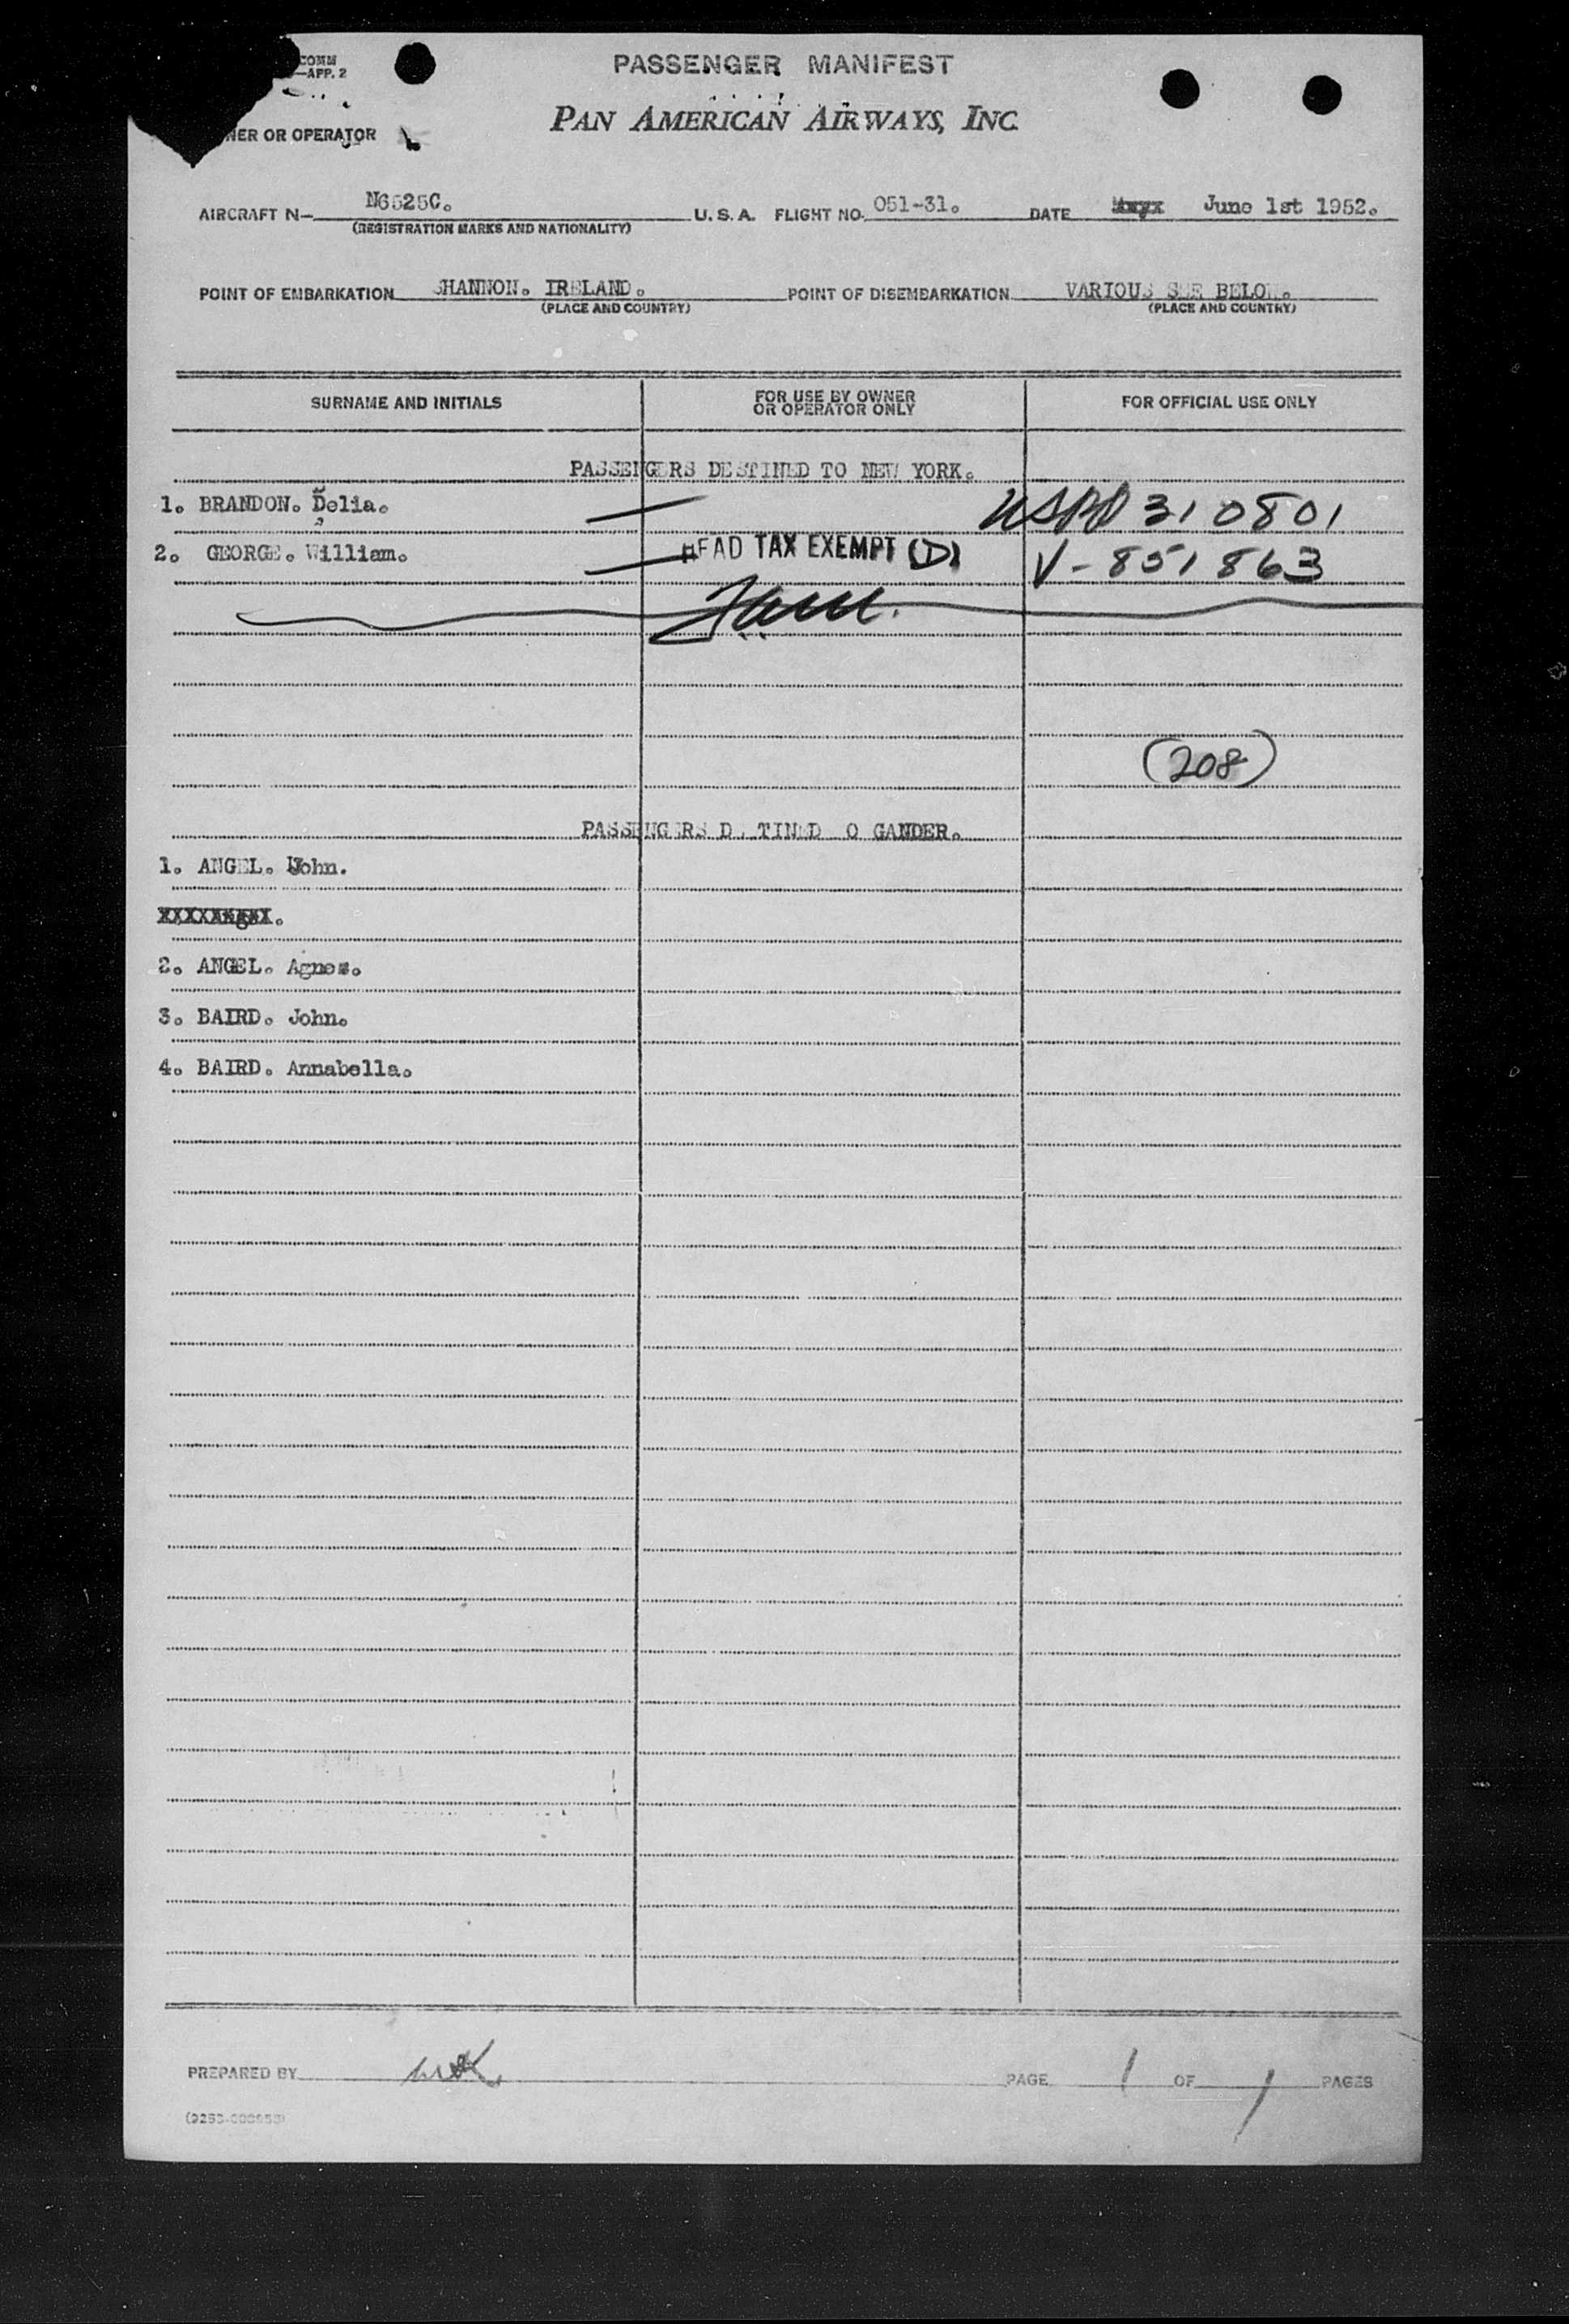 COMM
—APP. 2
PASSENGER MANIFEST
PAN AMERICAN AIRWAYS, INC.
NER OR OPERATOR
AIRCRAFT N— N6525C. U. S. A. FLIGHT NO. 051-31. DATE June 1st 1952.
(REGISTRATION MARKS AND NATIONALITY)
POINT OF EMBARKATION SHANNON. IRELAND. POINT OF DISEMBARKATION VARIOUS SEE BELOW.
(PLACE AND COUNTRY) (PLACE AND COUNTRY)
SURNAME AND INITIALS FOR USE BY OWNER OR OPERATOR ONLY FOR OFFICIAL USE ONLY
PASSENGERS DESTINED TO NEW YORK.
1. BRANDON. Delia. 310801
2. GEORGE. William. HEAD TAX EXEMPT (D) V-851863
(208)
PASSENGERS DESTINED TO GANDER.
1. ANGEL. John.
2. ANGEL. Agnes.
3. BAIRD. John.
4. BAIRD. Annabella.
PREPARED BY PAGE 1 OF 1 PAGES